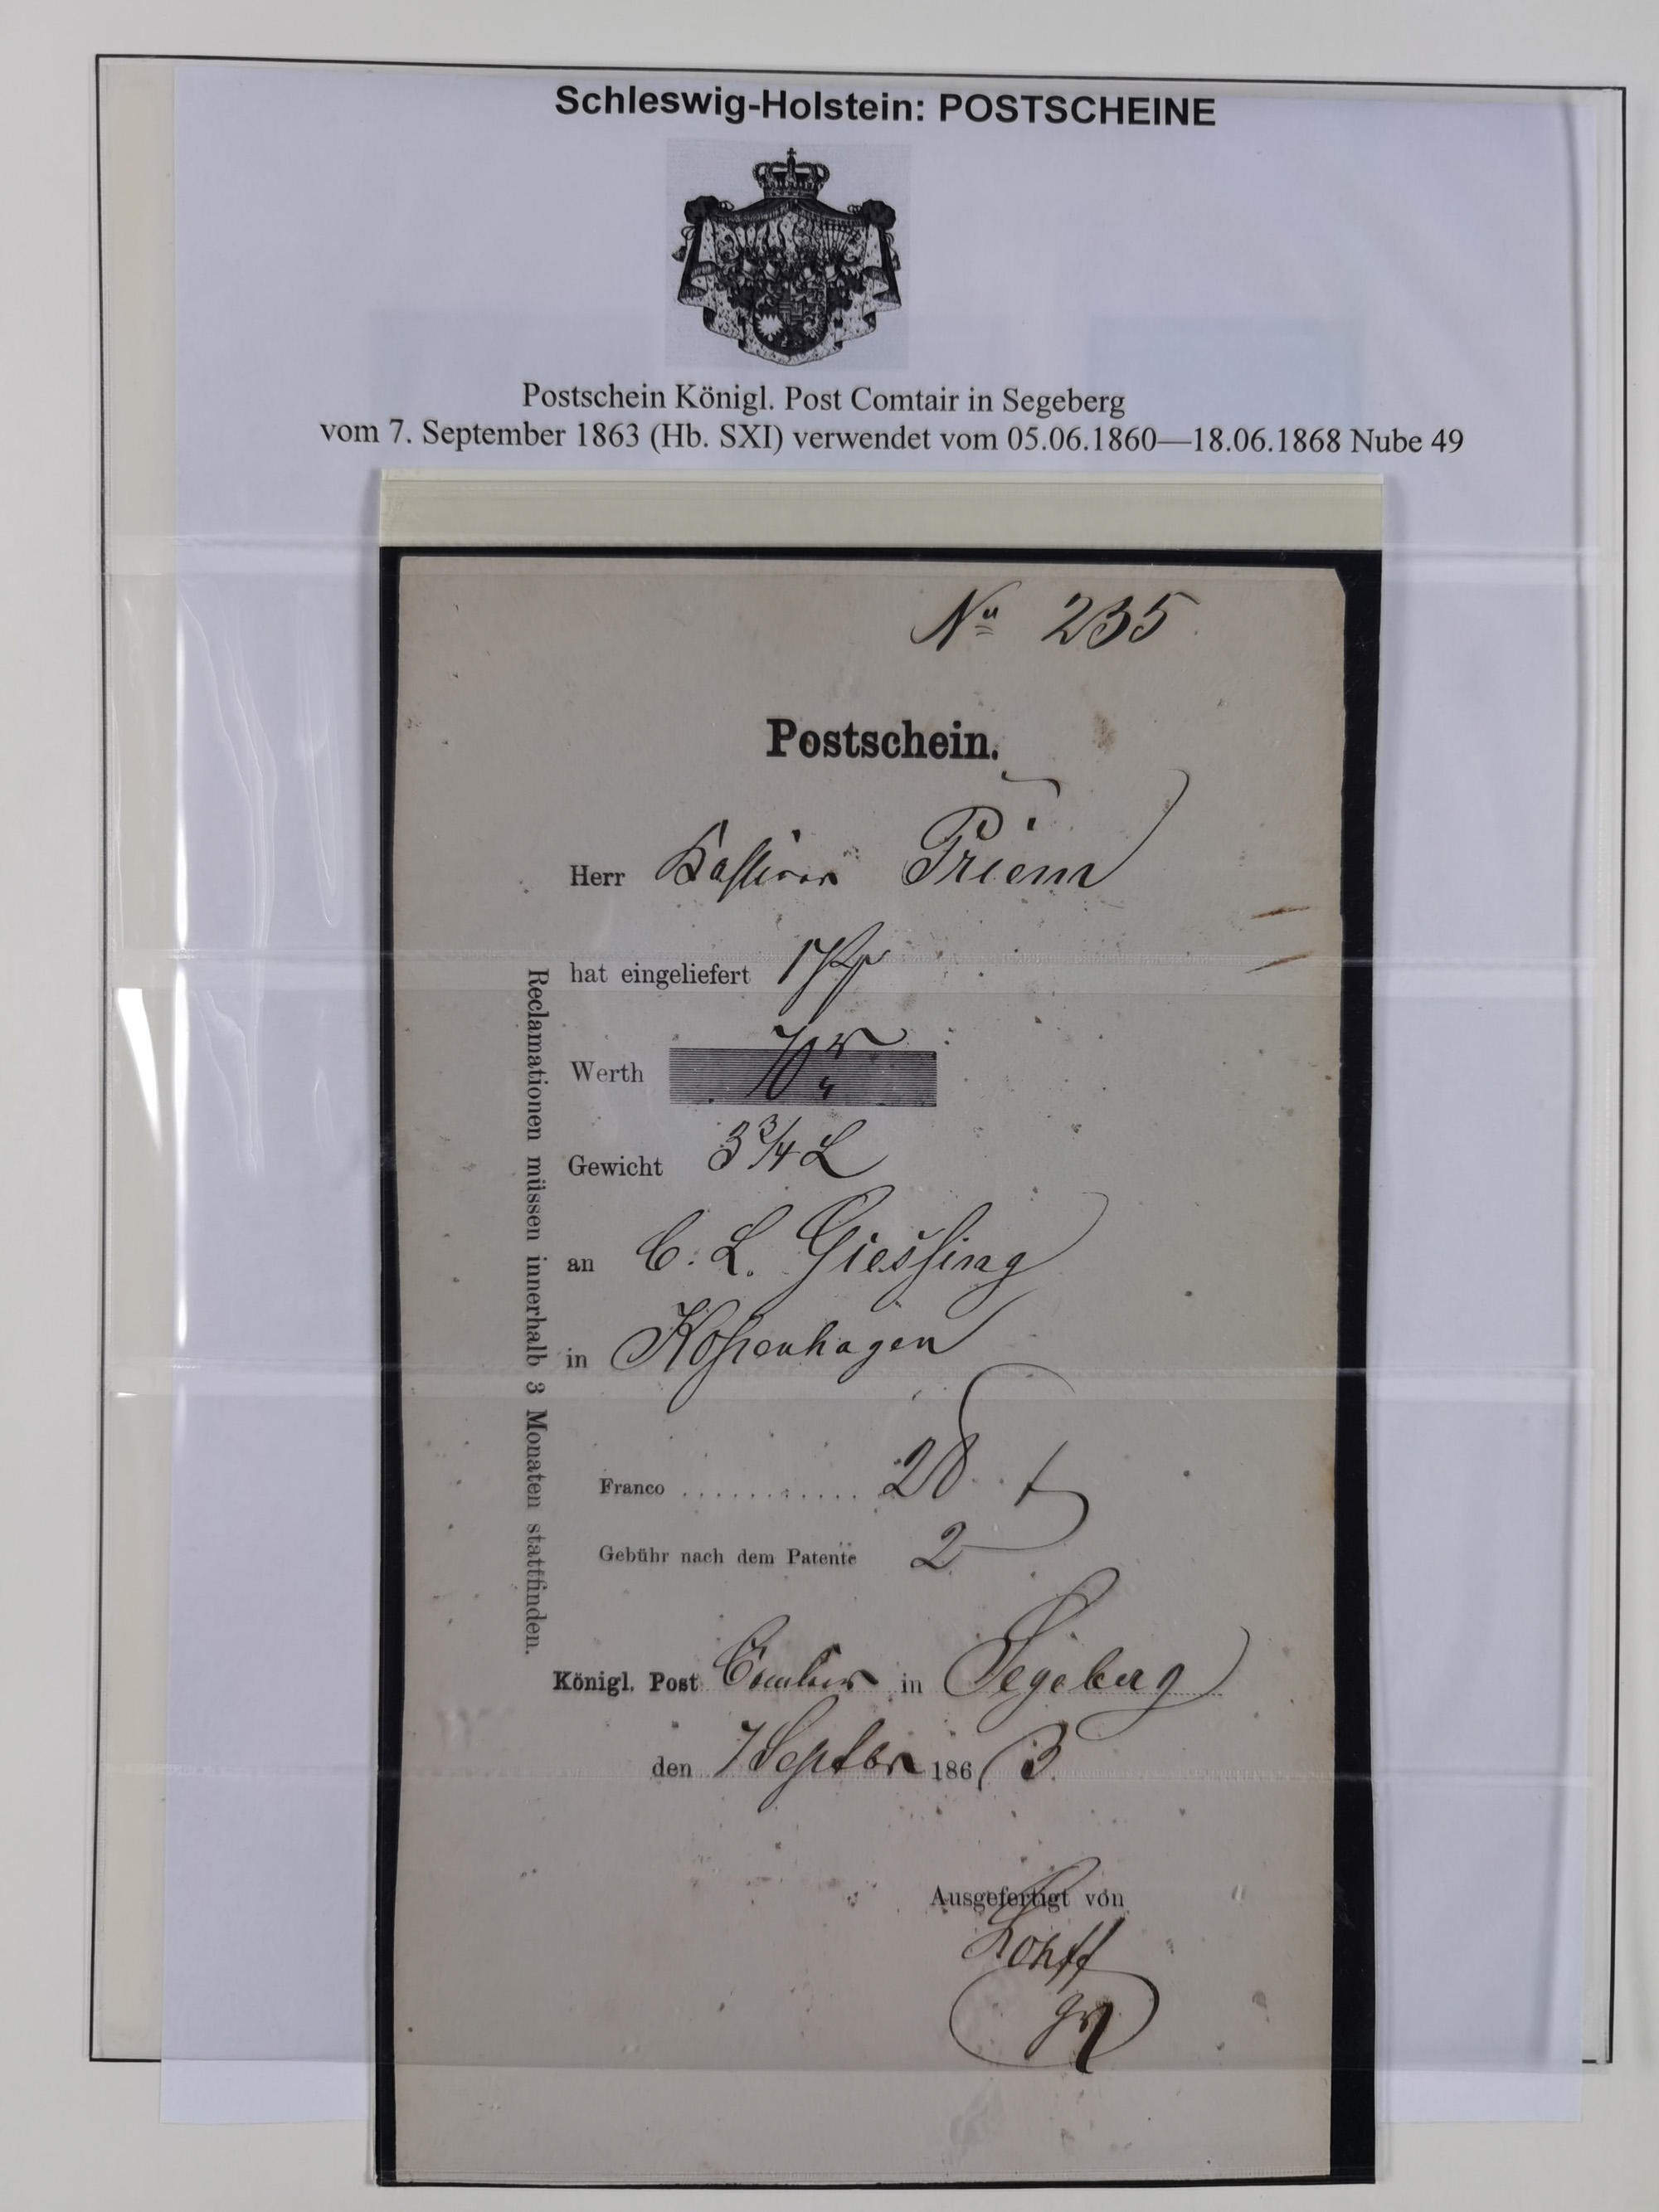 Schleswig-Holstein: POSTSCHEINE
Postschein Königl. Post Comtair in Segeberg
vom 7. September 1863 (Hb. SXI) verwendet vom 05.06.1860—18.06.1868 Nube 49
No 235.
Postschein.
Herr Priem
hat eingeliefert
Werth
Gewicht 3 3/4 L
an C. L. Giessing
in Kopenhagen
Franco ............ 28
Gebühr nach dem Patente 2
Königl. Post in Segeberg
den 7 Septbr 1863.
Ausgefertigt von
Reclamationen müssen innerhalb 3 Monaten stattfinden.